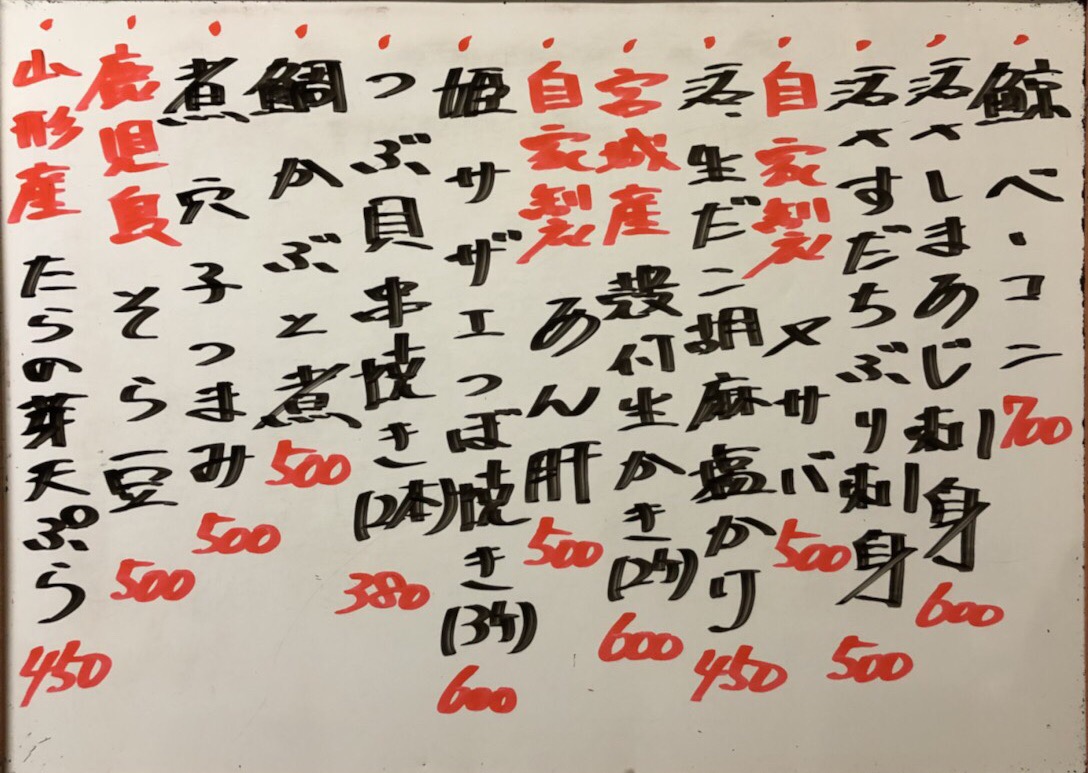 鯨ベーコン 700
活〆しまあじ刺身 600
活〆すだちぶり刺身 500
自家製 〆サバ 500
活生だこ胡麻塩かけ 450
宮城産 殻付生かき(2ケ) 600
自家製 あん肝 500
姫サザエつぼ焼き(3ケ) 600
つぶ貝串焼き(2本) 380
鯛かぶと煮 500
煮穴子つまみ 500
鹿児島 そら豆 500
山形産 たらの芽天ぷら 450